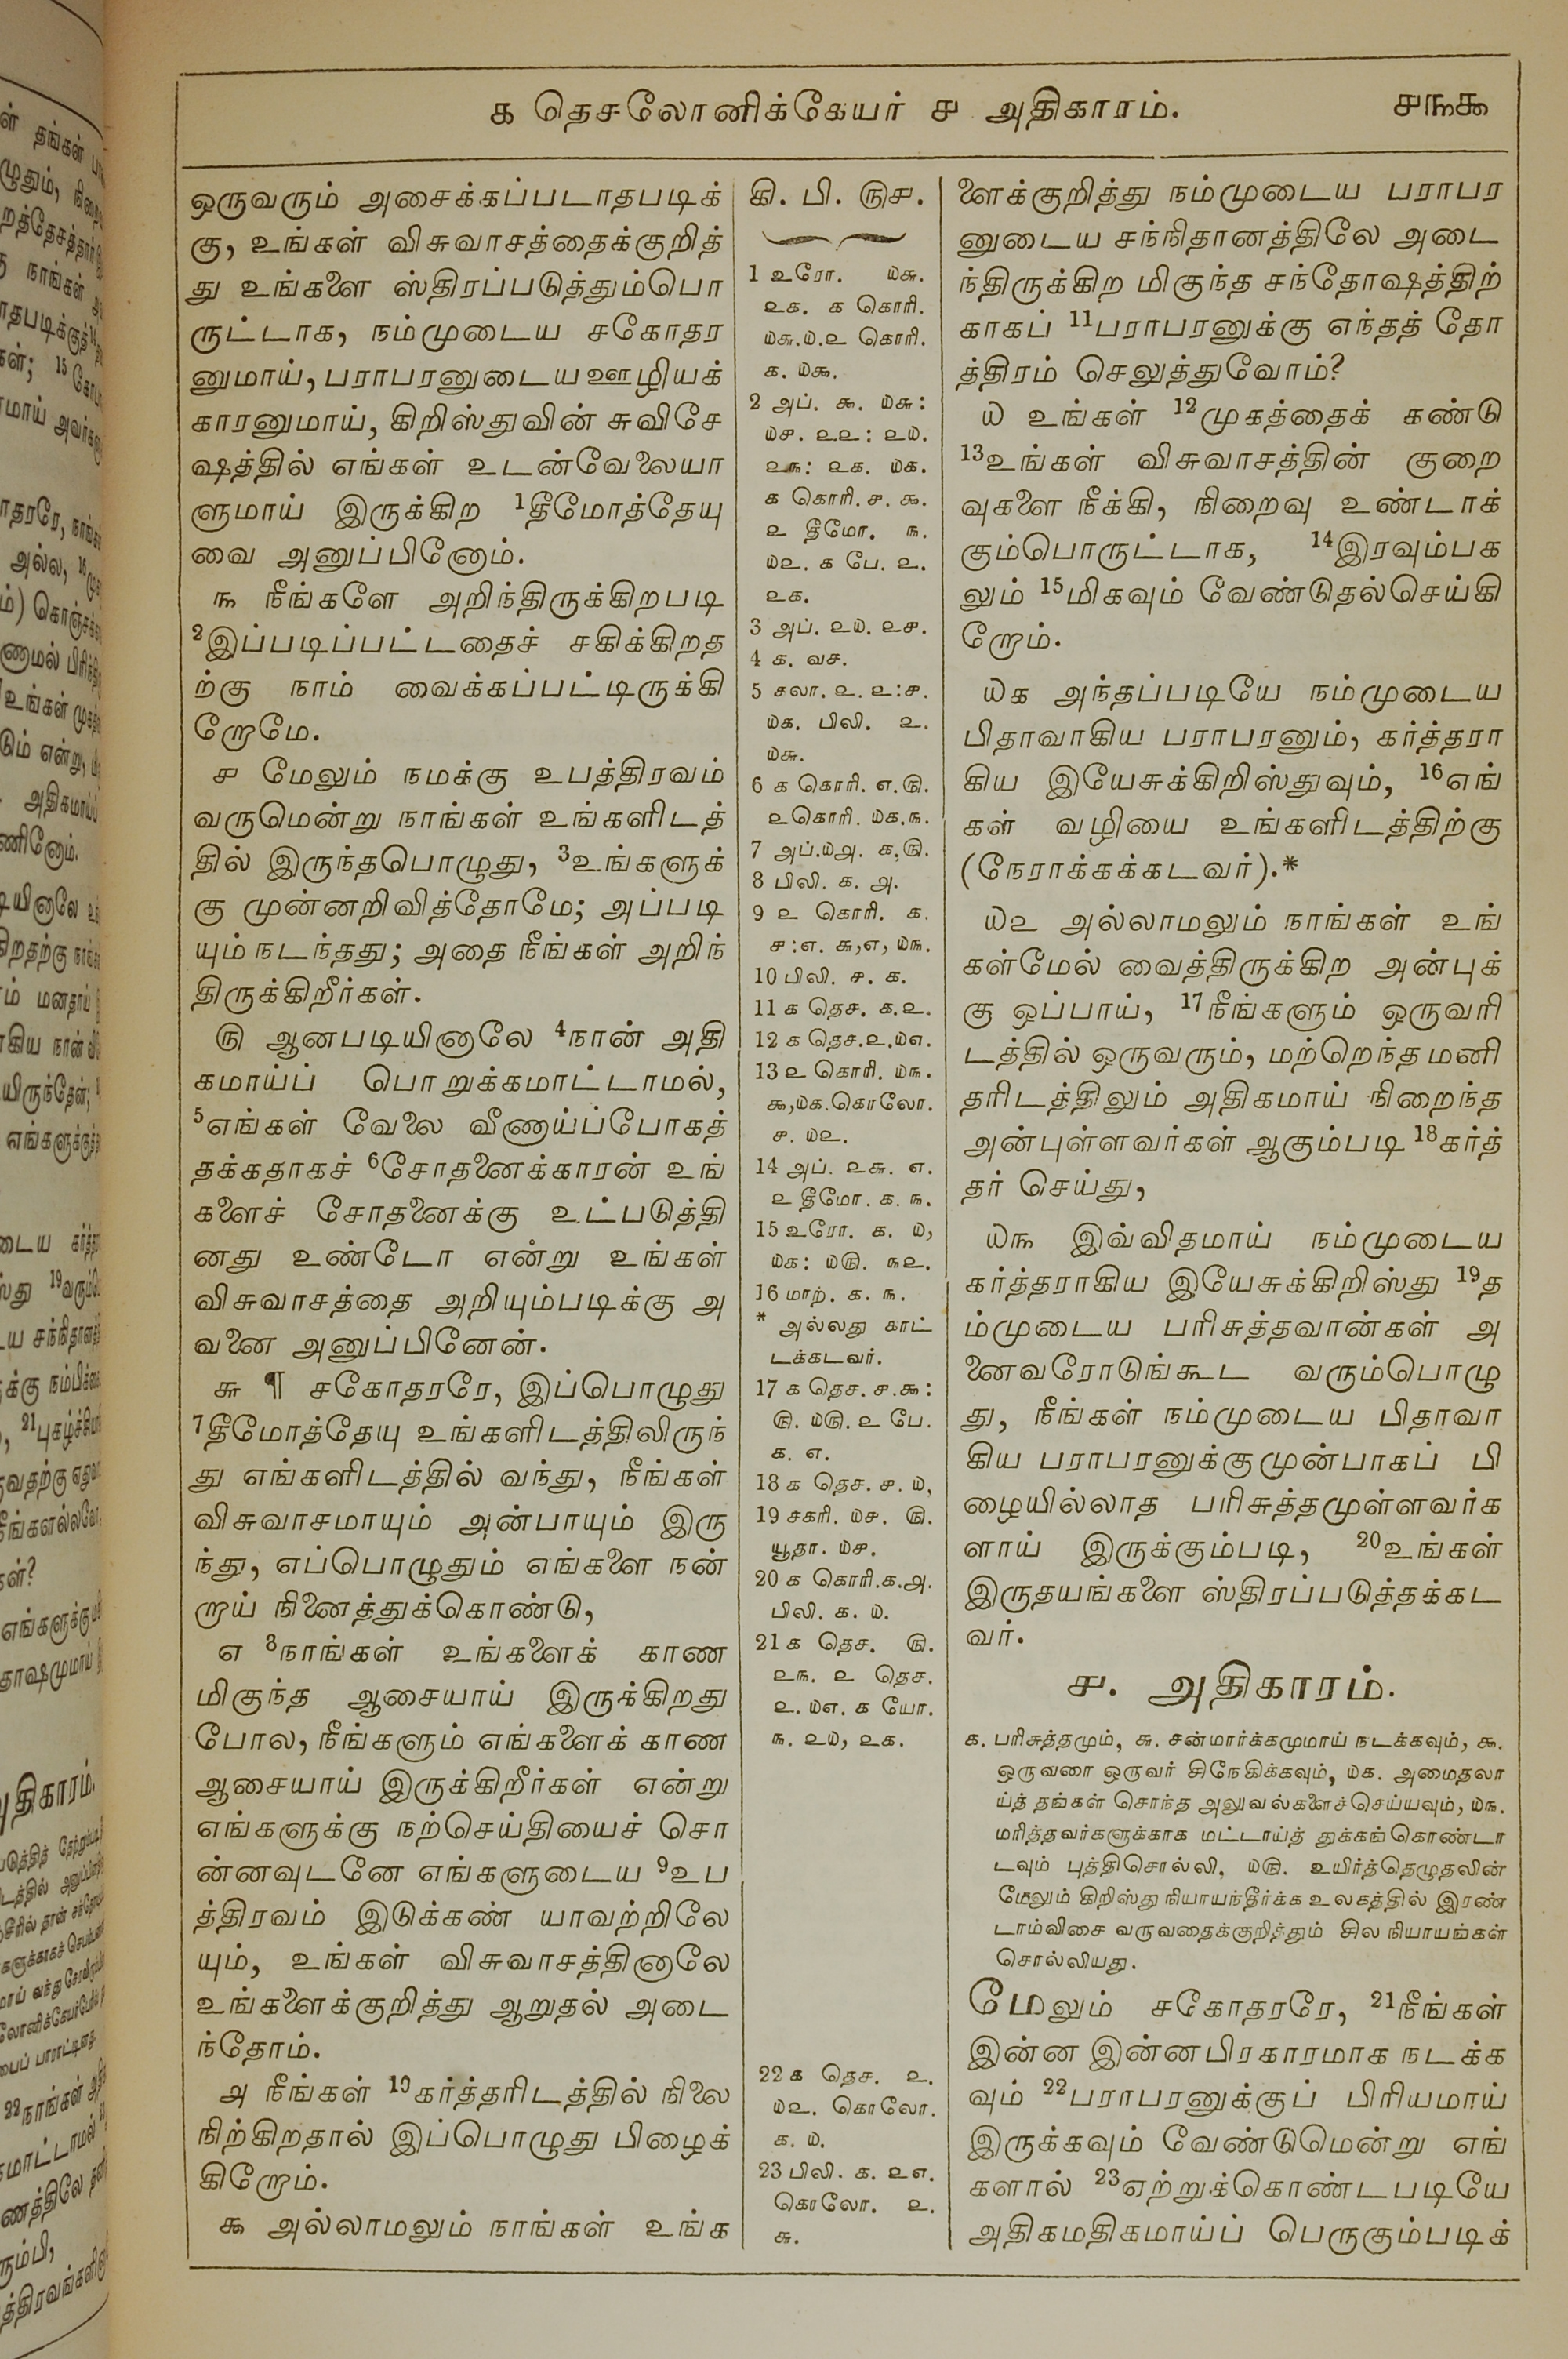 ௧ தெசலோனிக்கேயர் ௪ அதிகாரம்.
௪௩௯
ஒருவரும் அசைக்கப்படாதபடிக்
கு, உங்கள் விசுவாசத்தைக்குறித்
து உங்களை ஸ்திரப்படுத்தும்பொ
ருட்டாக, நம்முடைய சகோதர
னுமாய், பராபரனுடைய ஊழியக்
காரனுமாய், கிறிஸ்துவின் சுவிசே
ஷத்தில் எங்கள் உடன்வேலையா
ளுமாய் இருக்கிற 1தீமோத்தேயு
வை அனுப்பினோம்.
௩ நீங்களே அறிந்திருக்கிறபடி
2இப்படிப்பட்டதைச் சகிக்கிறத
ற்கு நாம் வைக்கப்பட்டிருக்கி
றோமே.
௪ மேலும் நமக்கு உபத்திரவம்
வருமென்று நாங்கள் உங்களிடத்
தில் இருந்தபொழுது, 3உங்களுக்
கு முன்னறிவித்தோமே; அப்படி
யும் நடந்தது; அதை நீங்கள் அறிந்
திருக்கிறீர்கள்.
௫ ஆனபடியினாலே 4நான் அதி
கமாய்ப் பொறுக்கமாட்டாமல்,
5எங்கள் வேலை வீணாய்ப்போகத்
தக்கதாகச் 6சோதனைக்காரன் உங்
களைச் சோதனைக்கு உட்படுத்தி
னது உண்டோ என்று உங்கள்
விசுவாசத்தை அறியும்படிக்கு அ
வனை அனுப்பினேன்.
௬ ¶ சகோதரரே, இப்பொழுது
7தீமோத்தேயு உங்களிடத்திலிருந்
து எங்களிடத்தில் வந்து, நீங்கள்
விசுவாசமாயும் அன்பாயும் இரு
ந்து, எப்பொழுதும் எங்களை நன்
றாய் நினைத்துக்கொண்டு,
௭ 8நாங்கள் உங்களைக் காண
மிகுந்த ஆசையாய் இருக்கிறது
போல, நீங்களும் எங்களைக் காண
ஆசையாய் இருக்கிறீர்கள் என்று
எங்களுக்கு நற்செய்தியைச் சொ
ன்னவுடனே எங்களுடைய 9உப
த்திரவம் இடுக்கண் யாவற்றிலே
யும், உங்கள் விசுவாசத்தினாலே
உங்களைக்குறித்து ஆறுதல் அடை
ந்தோம்.
௮ நீங்கள் 10கர்த்தரிடத்தில் நிலை
நிற்கிறதால் இப்பொழுது பிழைக்
கிறோம்.
௯ அல்லாமலும் நாங்கள் உங்க
கி. பி. ௫௪.
1 உரோ. ௰௬.
௨௧. ௧ கொரி.
௰௬.௰.௨ கொரி.
௧. ௰௯.
2 அப். ௯. ௰௬:
௰௪. ௨௨: ௨௰.
௨௩: ௨௧. ௰௧.
௧ கொரி. ௪. ௯.
௨ தீமோ. ௩.
௰௨. ௧ பே. ௨.
௨௧.
3 அப். ௨௰. ௨௪.
4 ௧. வச.
5 சலா. ௨. ௨:௪.
௰௧. பிலி. ௨.
௰௬.
6 ௧ கொரி. ௭.௫.
௨கொரி. ௰௧.௩.
7 அப்.௰௮. ௧,௫.
8 பிலி. ௧. ௮.
9 ௨ கொரி. ௧.
௪:௭. ௬,௭, ௰௩.
10 பிலி. ௪. ௧.
11 ௧ தெச. ௧.௨.
12 ௧ தெச.௨.௰௭.
13 ௨ கொரி. ௰௩.
௯,௰௧.கொலோ.
௪. ௰௨.
14 அப். ௨௬. ௭.
௨ தீமோ. ௧. ௩.
15 உரோ. ௧. ௰,
௰௧: ௰௫. ௩௨.
16 மாற். ௧. ௩.
* அல்லது காட்
டக்கடவர்.
17 ௧ தெச. ௪.௯:
௫. ௰௫. ௨ பே.
௧. ௭.
18 ௧ தெச. ௪. ௰,
19 சகரி. ௰௪. ௫.
யூதா. ௰௪.
20 ௧ கொரி.௧.௮.
பிலி. ௧. ௰.
21 ௧ தெச. ௫.
௨௩. ௨ தெச.
௨. ௰௭. ௧ யோ.
௩. ௨௰, ௨௧.
22 ௧ தெச. ௨.
௰௨. கொலோ.
௧. ௰.
23 பிலி. ௧. ௨௭.
கொலோ. ௨.
௬.
ளைக்குறித்து நம்முடைய பராபர
னுடைய சந்நிதானத்திலே அடை
ந்திருக்கிற மிகுந்த சந்தோஷத்திற்
காகப் 11பராபரனுக்கு எந்தத் தோ
த்திரம் செலுத்துவோம்?
௰ உங்கள் 12முகத்தைக் கண்டு
13உங்கள் விசுவாசத்தின் குறை
வுகளை நீக்கி, நிறைவு உண்டாக்
கும்பொருட்டாக, 14இரவும்பக
லும் 15மிகவும் வேண்டுதல்செய்கி
றோம்.
௰௧ அந்தப்படியே நம்முடைய
பிதாவாகிய பராபரனும், கர்த்தரா
கிய இயேசுக்கிறிஸ்துவும், 16எங்
கள் வழியை உங்களிடத்திற்கு
(நேராக்கக்கடவர்).*
௰௨ அல்லாமலும் நாங்கள் உங்
கள்மேல் வைத்திருக்கிற அன்புக்
கு ஒப்பாய், 17நீங்களும் ஒருவரி
டத்தில் ஒருவரும், மற்றெந்த மனி
தரிடத்திலும் அதிகமாய் நிறைந்த
அன்புள்ளவர்கள் ஆகும்படி 18கர்த்
தர் செய்து,
௰௩ இவ்விதமாய் நம்முடைய
கர்த்தராகிய இயேசுக்கிறிஸ்து 19த
ம்முடைய பரிசுத்தவான்கள் அ
னைவரோடுங்கூட வரும்பொழு
து, நீங்கள் நம்முடைய பிதாவா
கிய பராபரனுக்குமுன்பாகப் பி
ழையில்லாத பரிசுத்தமுள்ளவர்க
ளாய் இருக்கும்படி, 20உங்கள்
இருதயங்களை ஸ்திரப்படுத்தக்கட
வர்.
௪. அதிகாரம்.
௧. பரிசுத்தமும், ௬. சன்மார்க்கமுமாய் நடக்கவும், ௯.
ஒருவரை ஒருவர் சிநேகிக்கவும், ௰௧. அமைதலா
ய்த் தங்கள் சொந்த அலுவல்களைச்செய்யவும், ௰௩.
மரித்தவர்களுக்காக மட்டாய்த் துக்கங்கொண்டா
டவும் புத்திசொல்லி, ௰௫. உயிர்த்தெழுதலின்
மேலும் கிறிஸ்து நியாயந்தீர்க்க உலகத்தில் இரண்
டாம்விசை வருவதைக்குறித்தும் சில நியாயங்கள்
சொல்லியது.
மேலும் சகோதரரே, 21நீங்கள்
இன்ன இன்னபிரகாரமாக நடக்க
வும் 22பராபரனுக்குப் பிரியமாய்
இருக்கவும் வேண்டுமென்று எங்
களால் 23ஏற்றுக்கொண்டபடியே
அதிகமதிகமாய்ப் பெருகும்படிக்